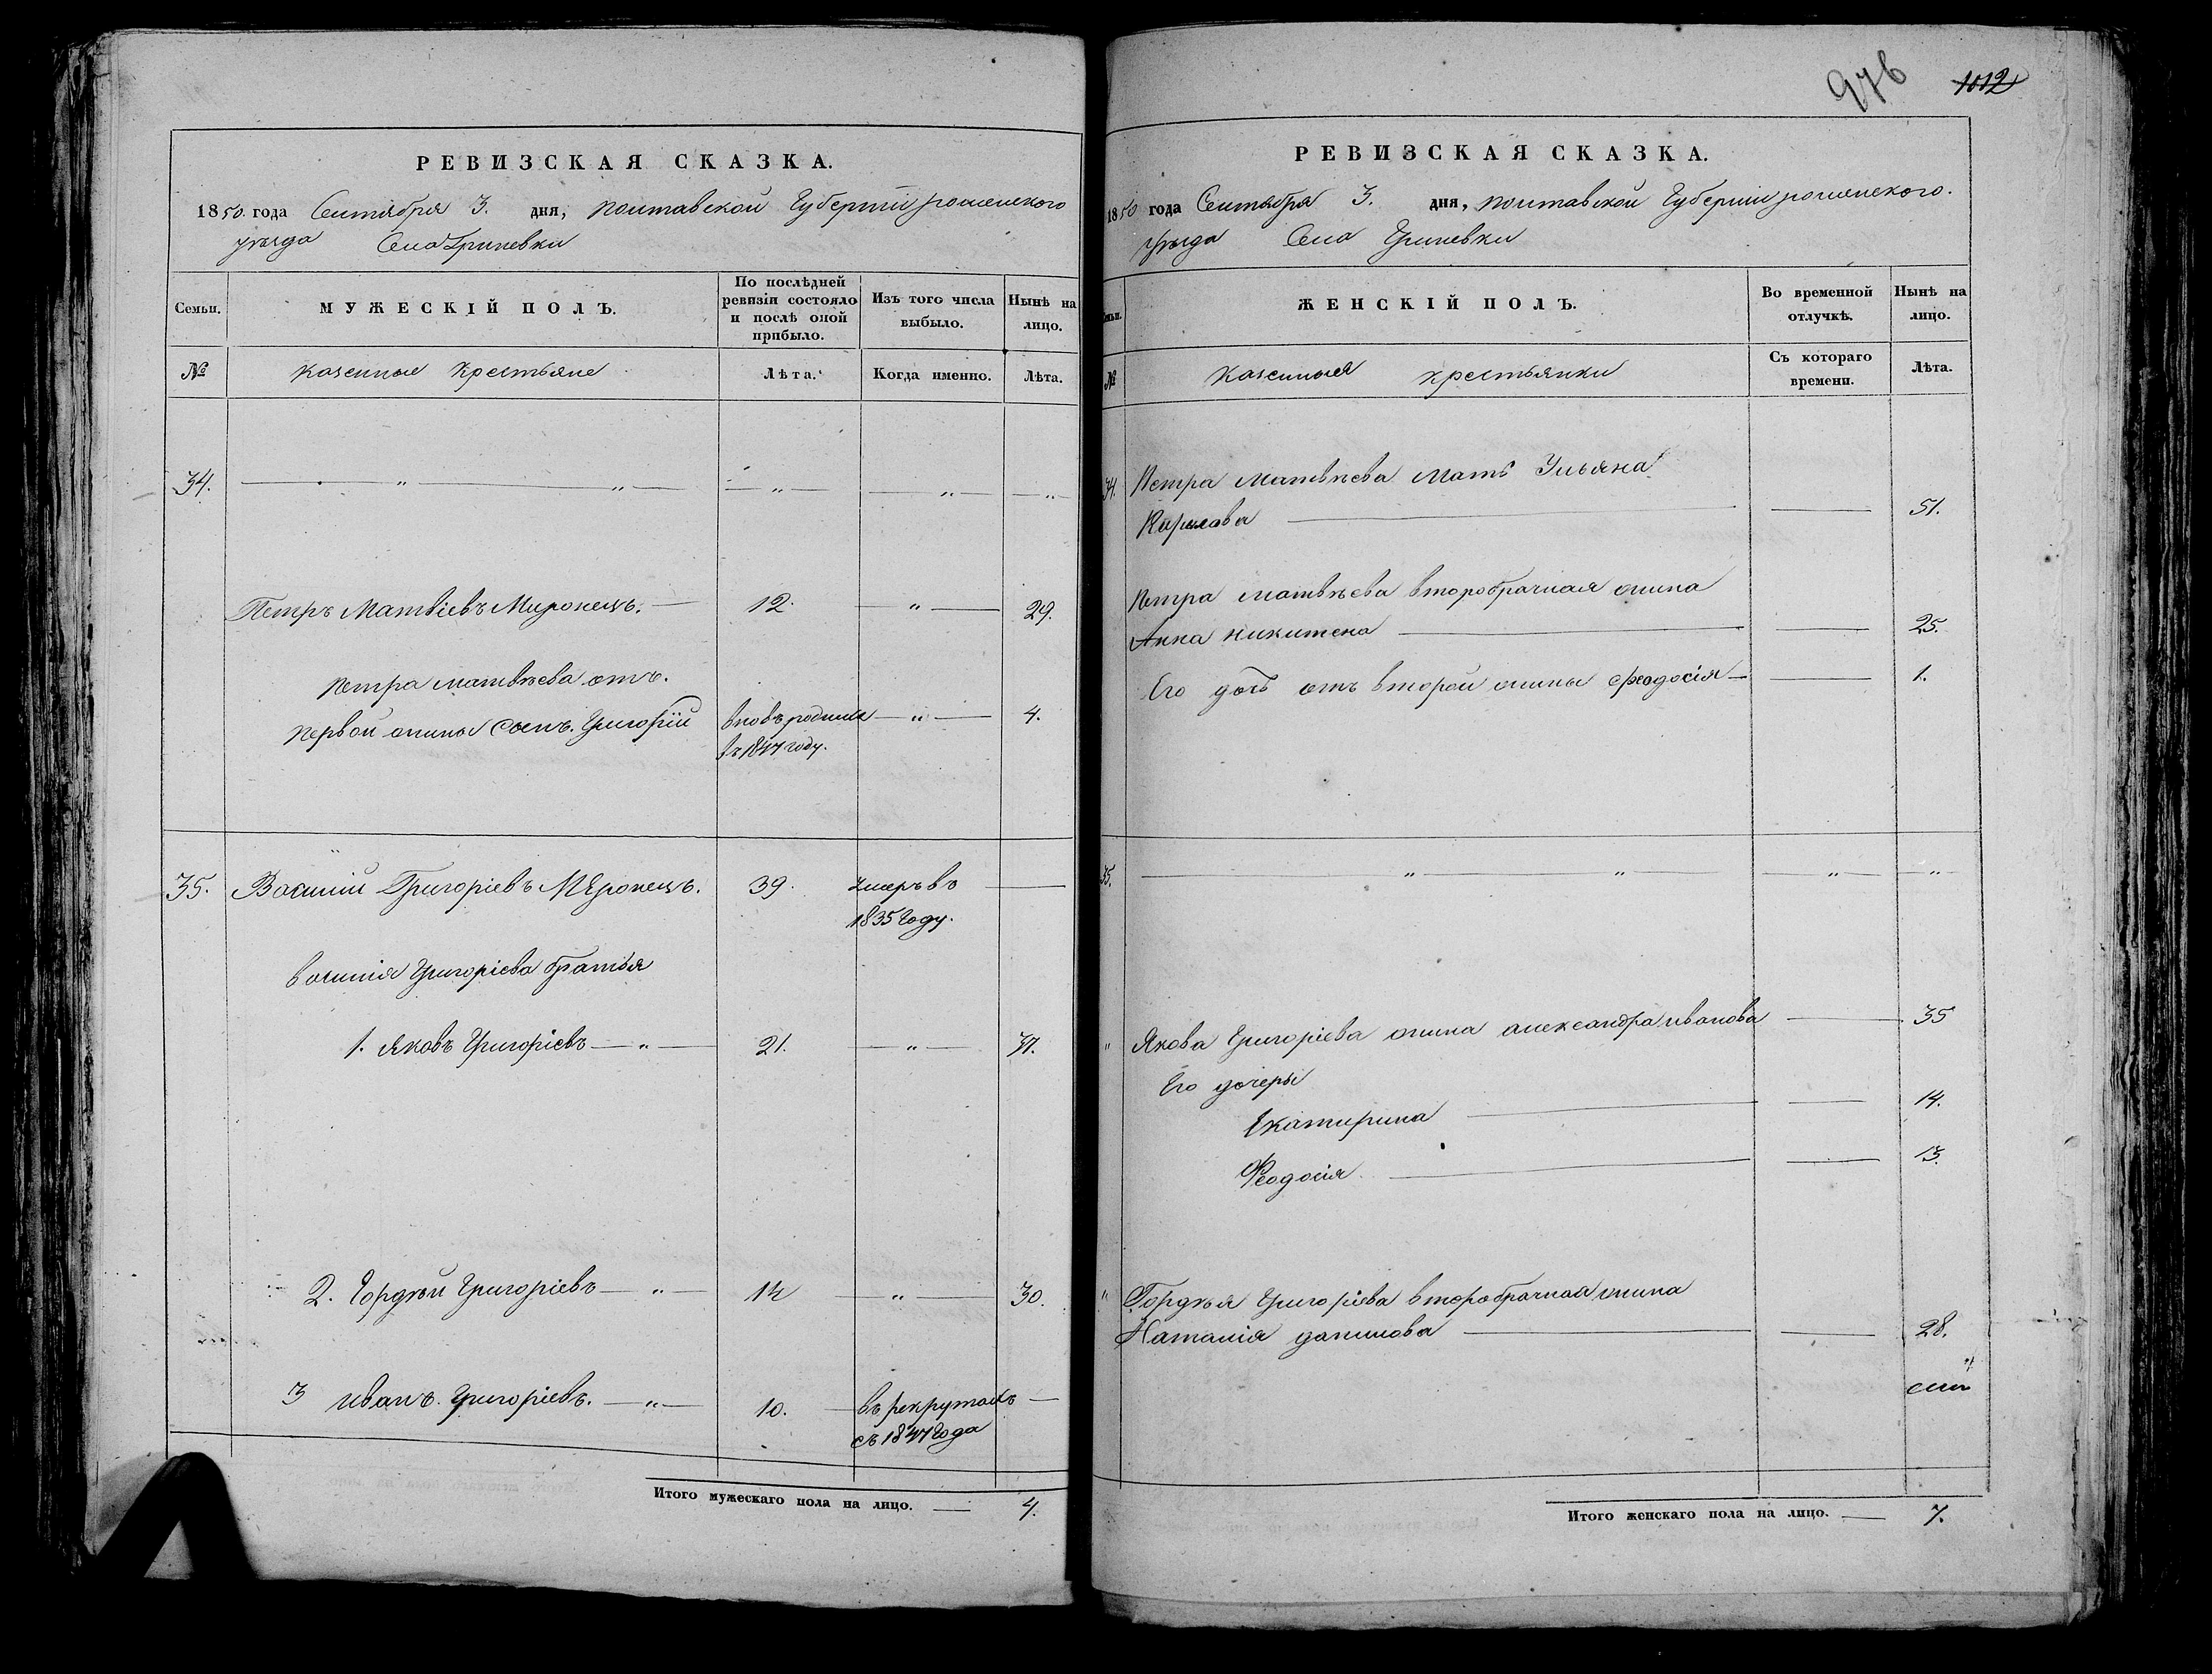 976 1012
РЕВИЗСКАЯ СКАЗКА.
1850 года Сентября 3. дня, полтавской Губерніи роменского
уѣзда Села Грипевки
Семьи. МУЖЕСКІЙ ПОЛЪ. По послѣдней ревизіи состояло и послѣ оной прибыло. Изъ того числа выбыло. Нынѣ на лицо.
№ Казенные Крестьяне Лѣта. Когда именно. Лѣта.
34. — „ — „ — — „ — — „ — — „
Петръ Матвіевъ Миронецъ. — 12. — „ — 29.
Петра матвѣева отъ.
первой жины сынъ. Григорій вновь родился — „ — 4.
въ 1847 году.
35. Василій Григоріевъ Міронецъ. 39. умеръ въ —
1835 Году.
василія Григоріева братья
1. Яковъ Григоріевъ — „ — 21. — „ — 37.
2. Гордѣй Григоріевъ — „ — 14 — „ — 30.
3 иванъ. Григоріевъ. — „ — 10. — въ рекрутахъ —
съ 1847 Года
Итого мужескаго пола на лицо. — 4.
РЕВИЗСКАЯ СКАЗКА.
1850 года Сентября 3. дня, полтавской Губерніи роменского.
уѣзда Села Грипевки
ЖЕНСКІЙ ПОЛЪ. Во временной отлучкѣ. Нынѣ на лицо.
№ Казенныя крестьянки Съ котораго времени. Лѣта.
34. Петра матвѣева мать Ульяна
Кирилова — — 51.
Петра матвѣева второбрачная жина
Анна никитена — — 25.
Его дочь отъ второй жины Феодосія — — 1.
35. — „ — „ — — „ — — „ —
„ Якова Григоріева жина александра иванова — 35
Его дочеры
Екатирина — — 14.
Феодосія. — — 13.
„ Гордѣя Григоріева второбрачная жина
Наталія данилова — — 28.
Итого женскаго пола на лицо. — 7.